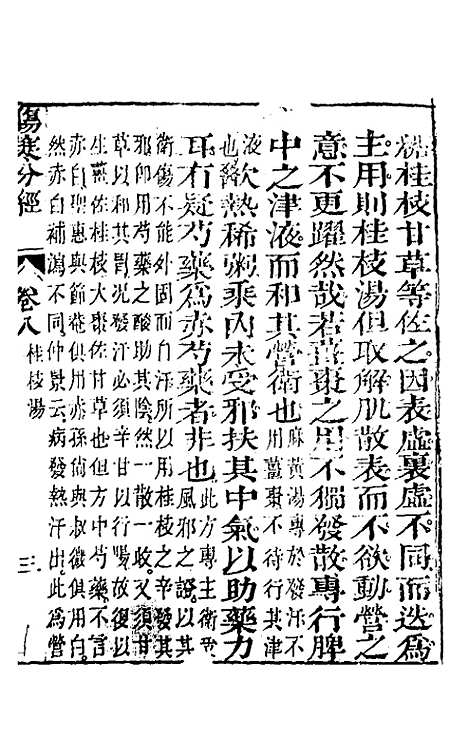 桂枝甘草等佐之因表虛裏虛不同而迭爲
主用則桂枝湯但取解肌散表而不欲動營之
意不更躍然哉若薑棗之用不獨發散專行脾
中之津液而和其營衛也麻黃湯專於發汗不
用薑棗不待行其津
液
也歠熱稀粥乘內未受邪扶其中氣以助藥力
耳有疑芍藥爲赤芍藥者非也此方專主衛受
風邪之證以其
衛傷不能外固而自汗所以用桂枝之辛發其
邪卽用芍藥之酸助其陰然一散一收又須甘
草以和其胃况發汗必須辛甘以行陽故復以
生薑佐桂枝大棗佐甘草也但方中芍藥不言
赤白聖惠與節菴俱用赤孫尙與叔微俱用白
然赤白補瀉不同仲景云病發熱汗出此爲營
傷寒分經
卷八
桂枝湯
三